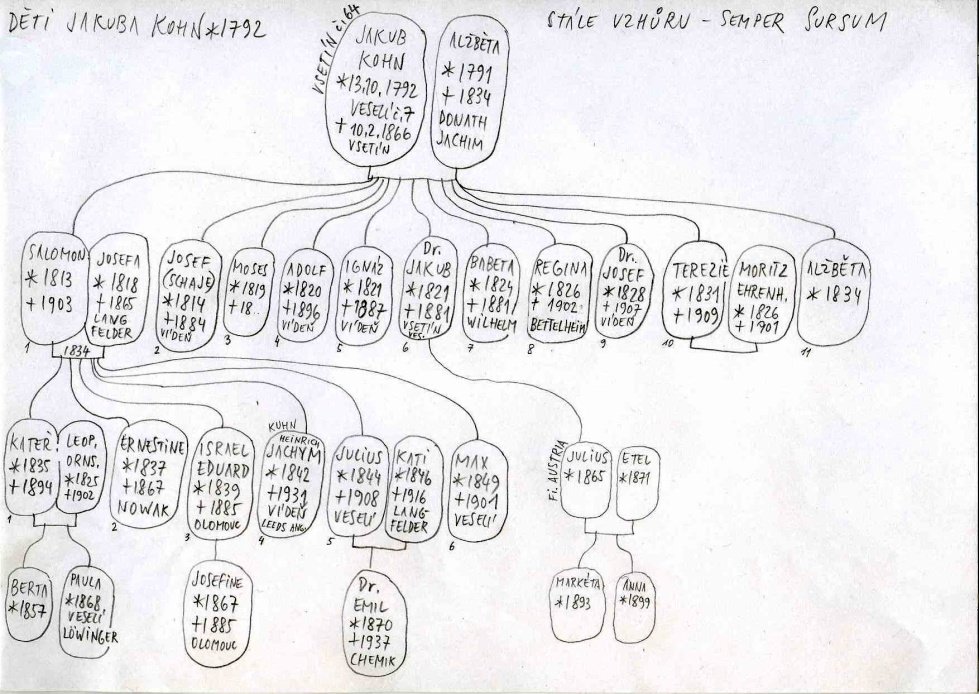 DĚTI JAKUBA KOHN *1792
STÁLE VZHŮRU – SEMPER SURSUM
VSETÍN č.64
JAKUB
KOHN
*13.10.1792
VESELÍ č.7
+10.2.1866
VSETÍN
ALŽBĚTA
*1791
+1834
DONATH
JACHIM
SALOMON
*1813
+1903
1
JOSEFA
*1818
+1865
LANG
FELDER
1834
JOSEF
(SCHAJE)
*1814
+1884
VÍDEŇ
2
MOSES
*1819
+18..
3
ADOLF
*1820
+1896
VÍDEŇ
4
IGNÁZ
*1821
+1887
VÍDEŇ
5
Dr.
JAKUB
*1821
+1881
VSETÍN
VES.
6
BABETA
*1824
+1881
WILHELM
7
REGINA
*1826
+1902
BETTELHEIM
8
Dr.
JOSEF
*1828
+1907
VÍDEŇ
9
TEREZIE
*1831
+1909
10
MORITZ
EHRENH.
*1826
+1901
ALŽBĚTA
*1834
11
KATEŘ.
*1835
+1894
1
LEOP.
ORNS.
*1825
+1902
ERNESTINE
*1837
+1867
NOWAK
2
ISRAEL
EDUARD
*1839
+1885
OLOMOUC
3
KUHN
HEINRICH
JACHYM
*1842
+1931
VÍDEŇ
LEEDS ANG.
4
JULIUS
*1844
+1908
VESELÍ
5
KATI
*1846
+1916
LANG-
FELDER
MAX
*1849
+1901
VESELÍ
6
Fi. AUSTRIA
JULIUS
*1865
ETEL
*1871
BERTA
*1857
PAULA
*1868,
VESELÍ
LÖWINGER
JOSEFINE
*1867
+1885
OLOMOUC
Dr.
EMIL
*1870
+1937
CHEMIK
MARKÉTA
*1893
ANNA
*1899